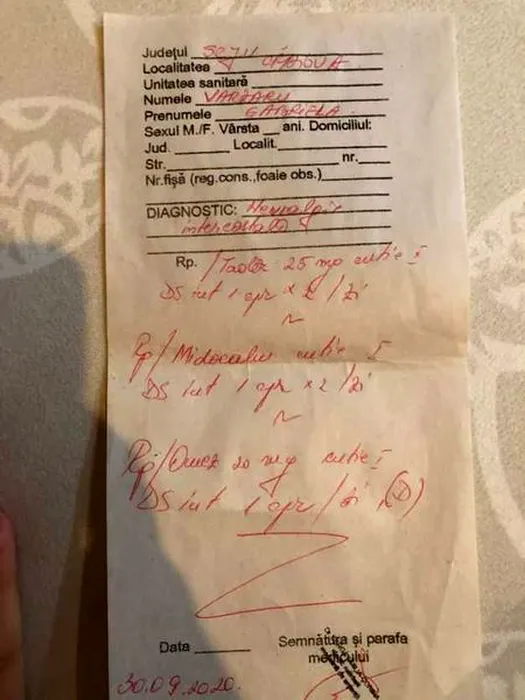 Județul SCJU
Localitatea CRAIOVA
Unitatea sanitară
Numele VARZARU
Prenumele GABRIELA
Sexul M./F. Vârsta ani. Domiciliul:
Jud. Localit.
Str. nr.
Nr.fișă (reg.cons.,foaie obs.)
DIAGNOSTIC: Nevralgie
intercostală
Rp. / 25 mg cutie I
DS int 1 cpr x 2 / zi
~
Rp/ Midocalm cutie I
DS int 1 cpr x 2 / zi
~
Rp/ Omez 20 mg cutie I
DS int 1 cpr / zi (D)
Data Semnătura și parafa
medicului
30.09.2020